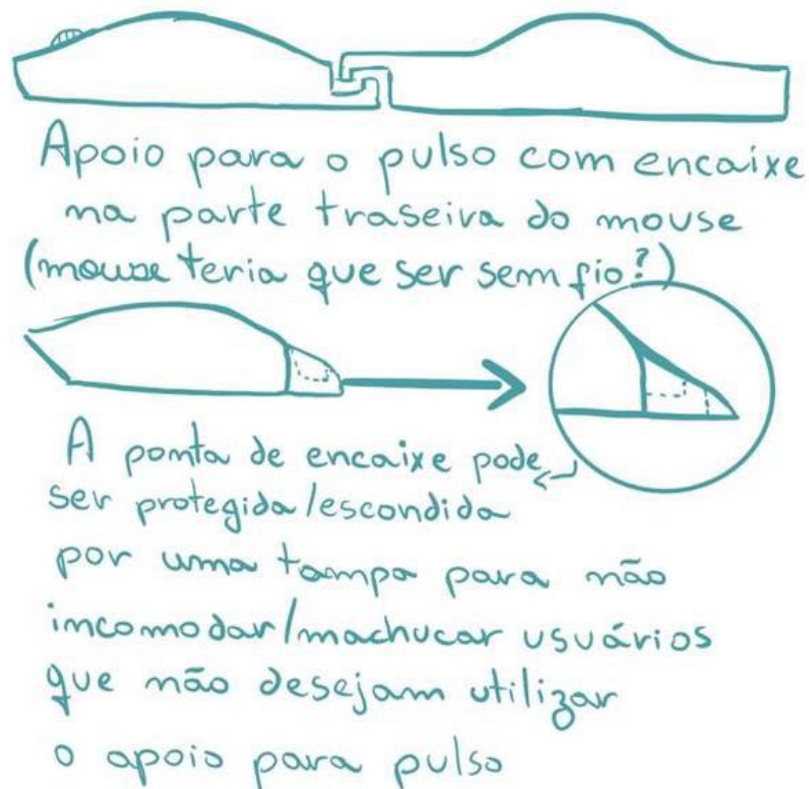 Apoio para o pulso com encaixe
na parte traseira do mouse
(mouse teria que ser sem fio?)
A ponta de encaixe pode
ser protegida/escondida
por uma tampa para não
incomodar/machucar usuários
que não desejam utilizar
o apoio para pulso